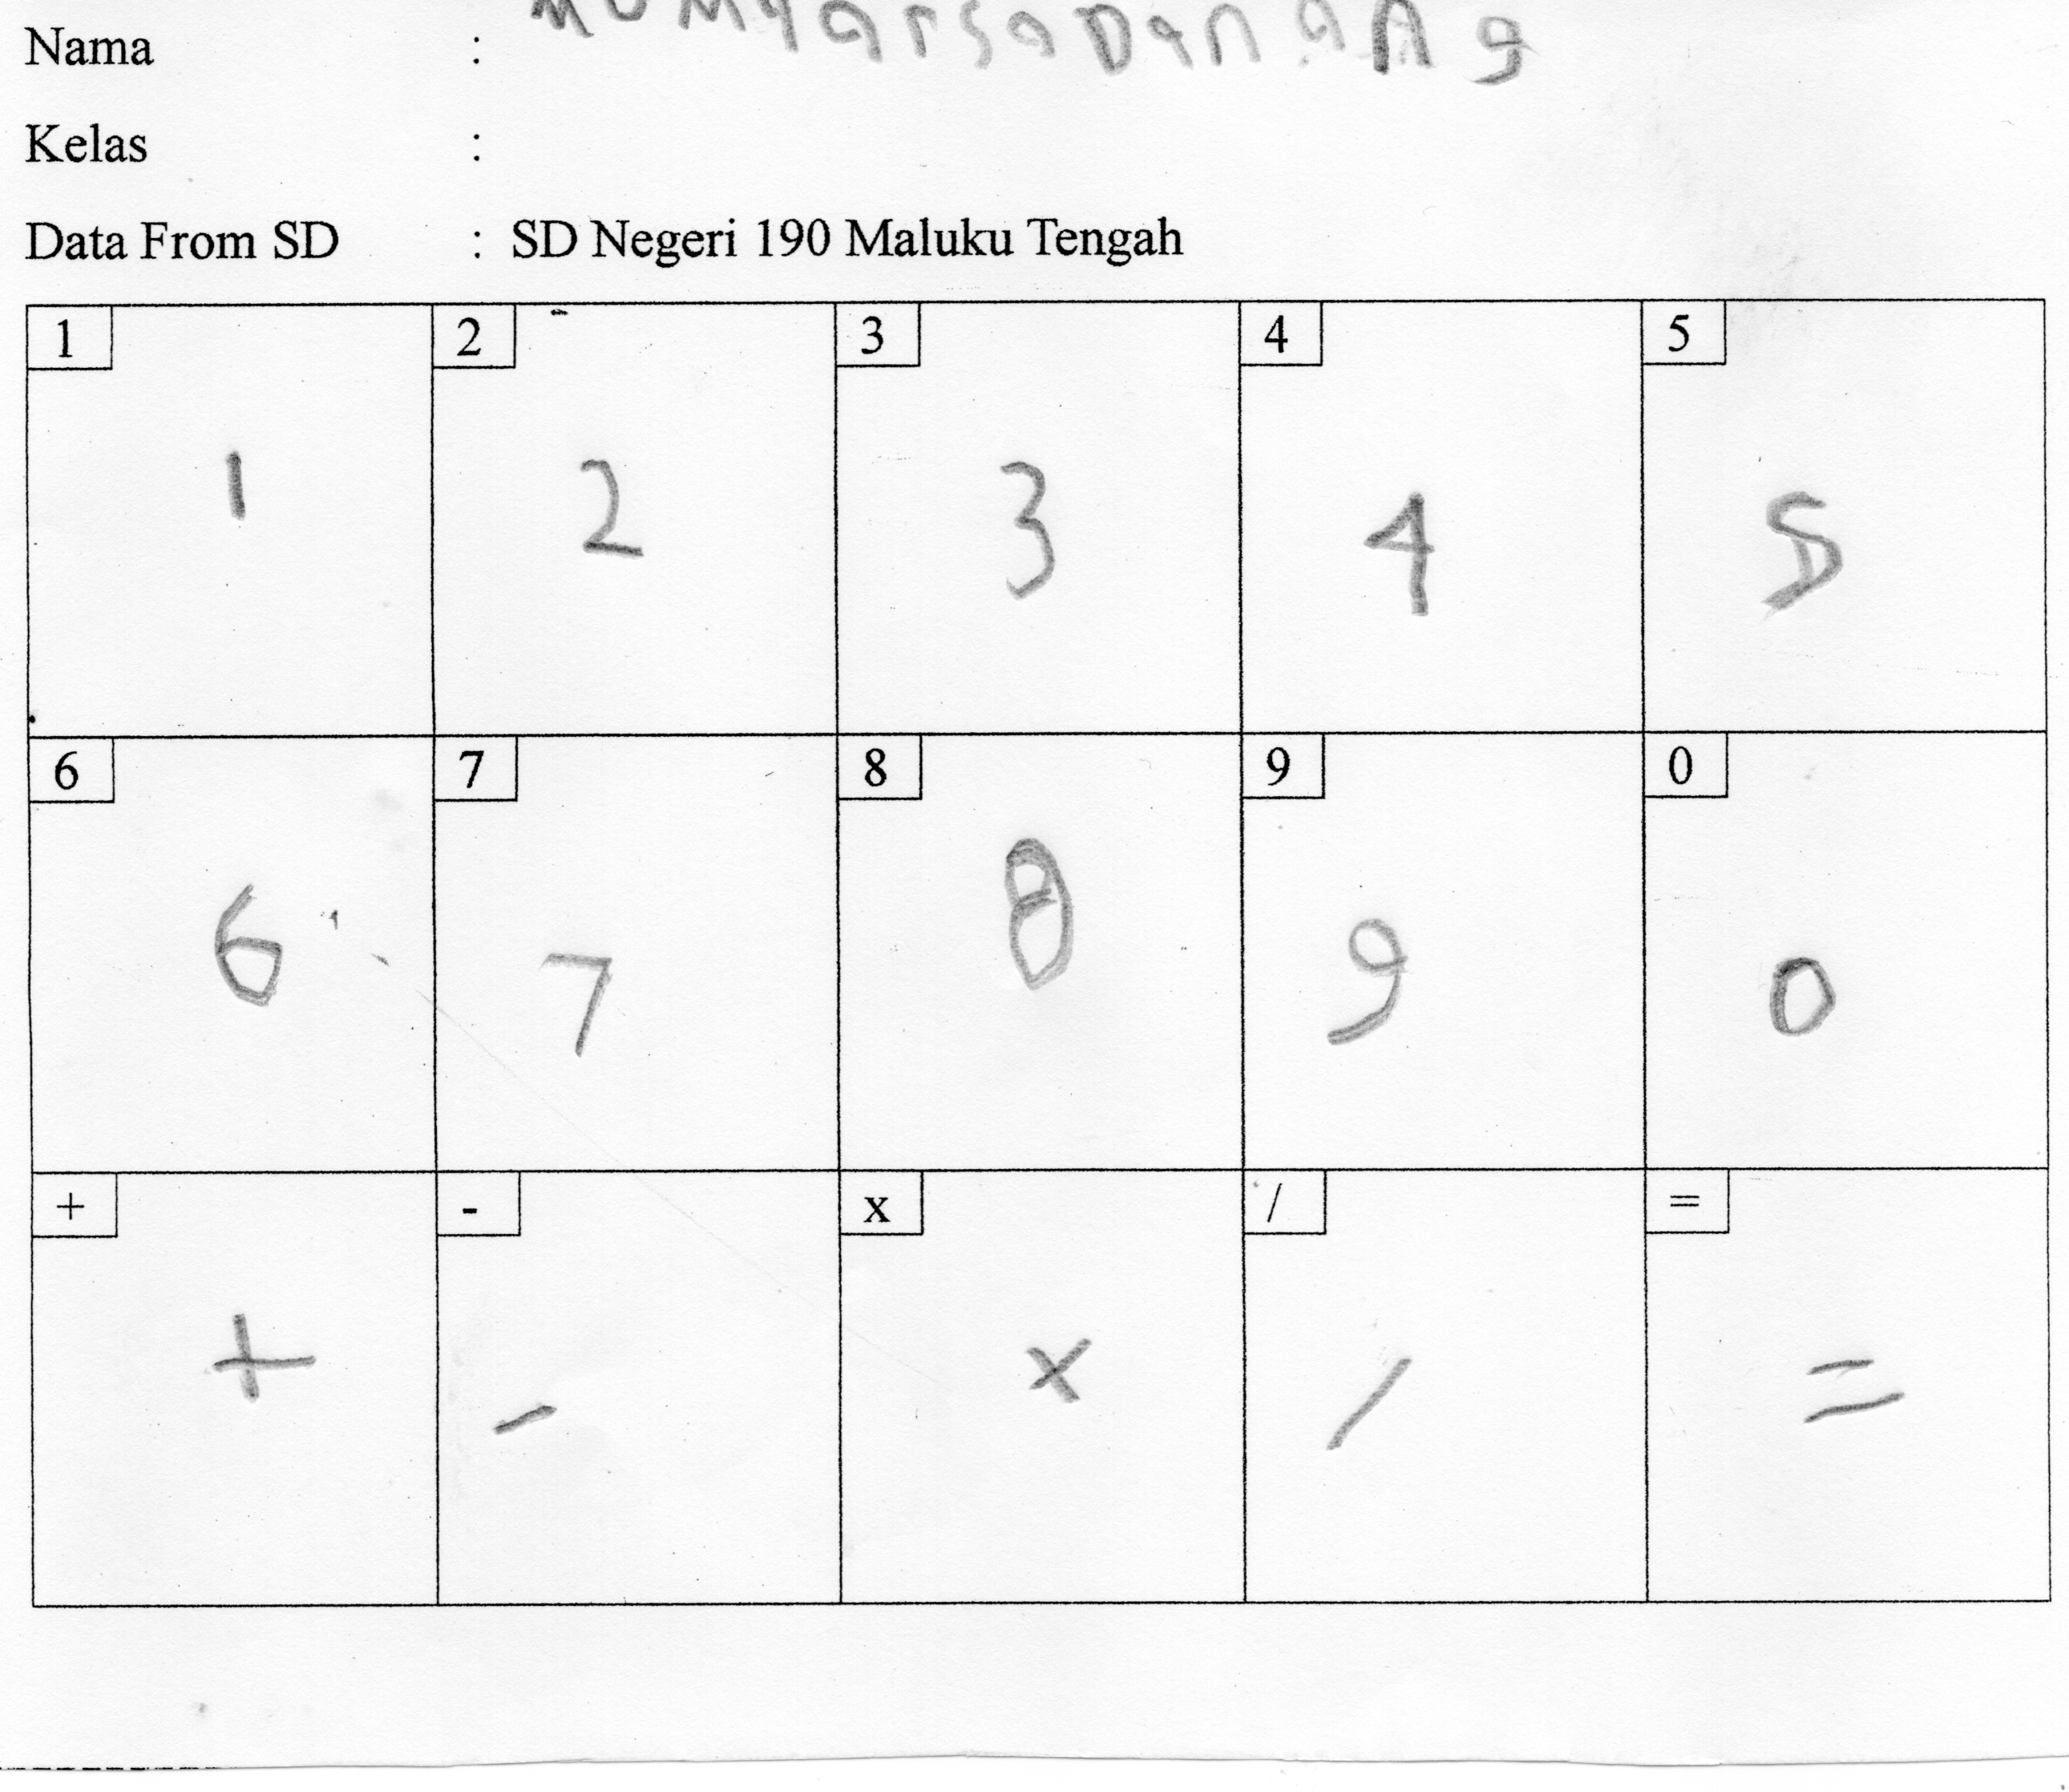 Nama :
Kelas :
Data From SD : SD Negeri 190 Maluku Tengah
1 2 3 4 5
1 2 3 4 5
6 7 8 9 0
6 7 8 9 0
+ - x / =
+ - x / =